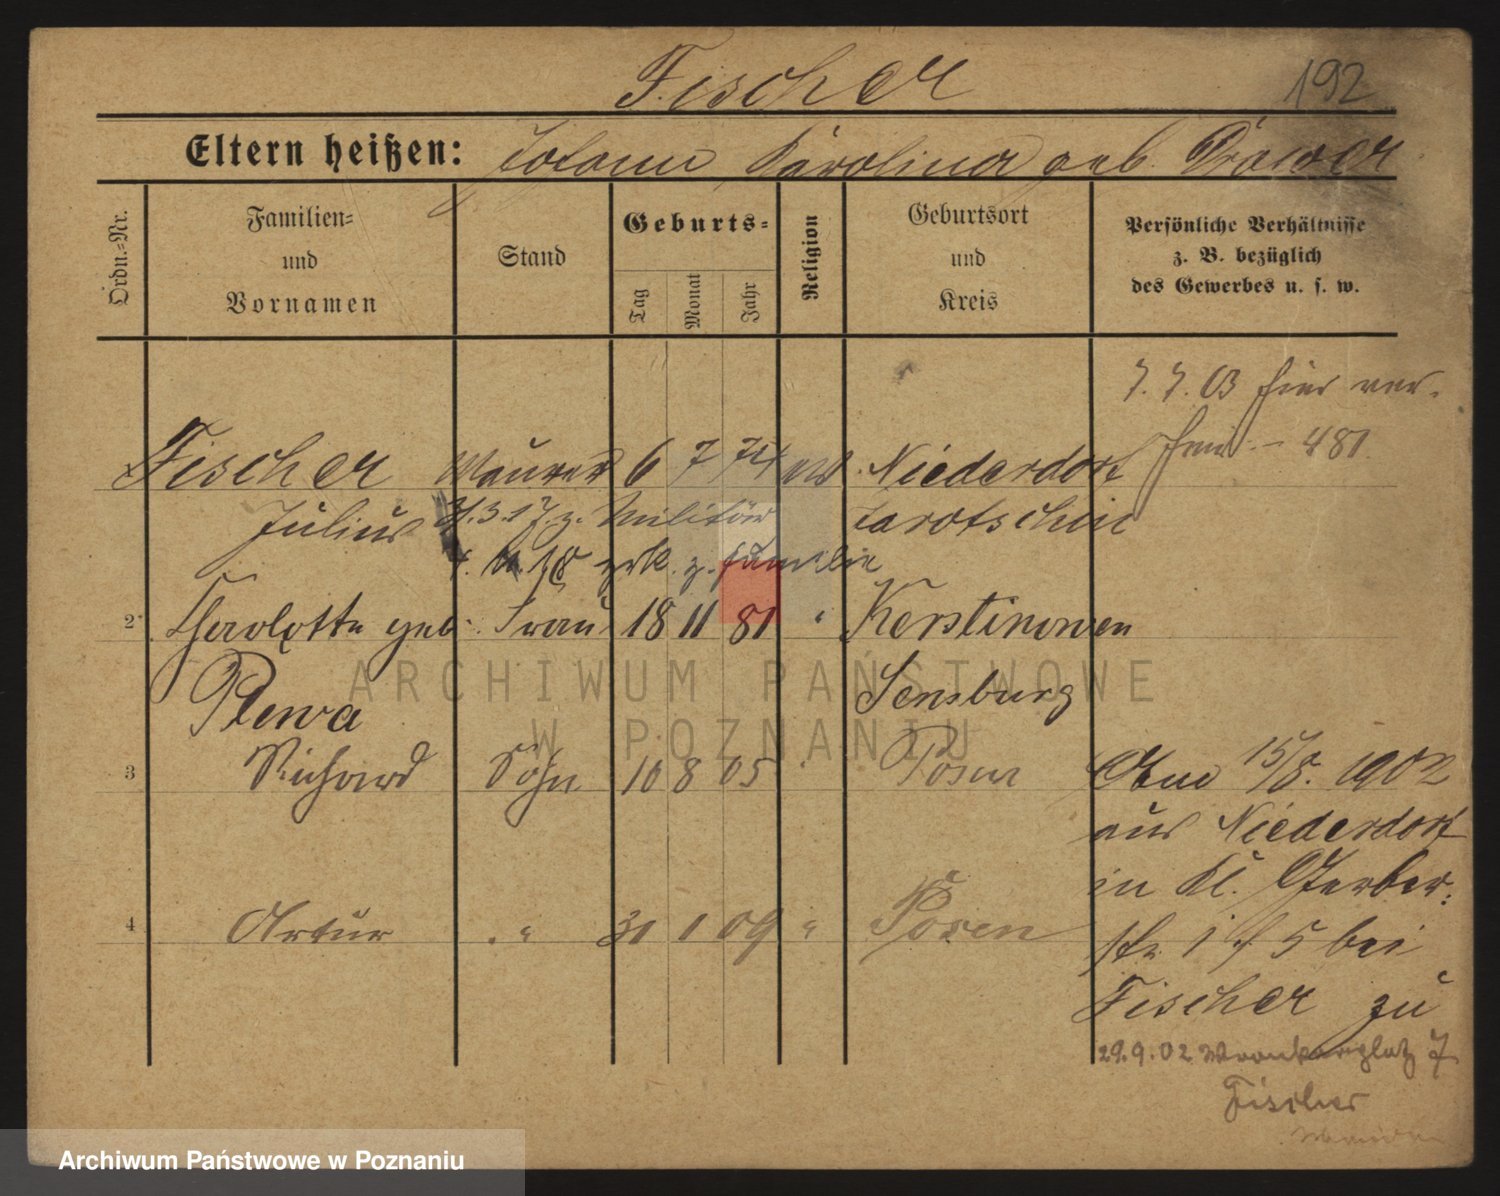 Fischer
192
Eltern heißen: Johann Karolina geb.
Ordn.-Nr.
Familien-
und
Vornamen
Stand
Geburts-
Tag
Monat
Jahr
Religion
Geburtsort
und
Kreis
Persönliche Verhältnisse
z. B. bezüglich
des Gewerbes u. s. w.
7. 7. 03 hier ver-
heir. - 481.
Fischer Maurer 6 7 74 ev. Niederdorf
Julius 3. 17 z. Militär Jarotschin
18 zrk. z. Familie
2 Charlotte geb. Frau 18 11 81 " Kerstinowen
Plewa Sensburg
3 Richard Sohn 10 8 05 " Posen
15/8. 1902
aus Niederdorf
in Kl. Gerber-
str. 5 bei
4 Artur " 30 1 09 " Posen
Fischer zu
29.9.02 Wronkerplatz 7
Fischer
ARCHIWUM PAŃSTWOWE
W POZNANIU
Archiwum Państwowe w Poznaniu